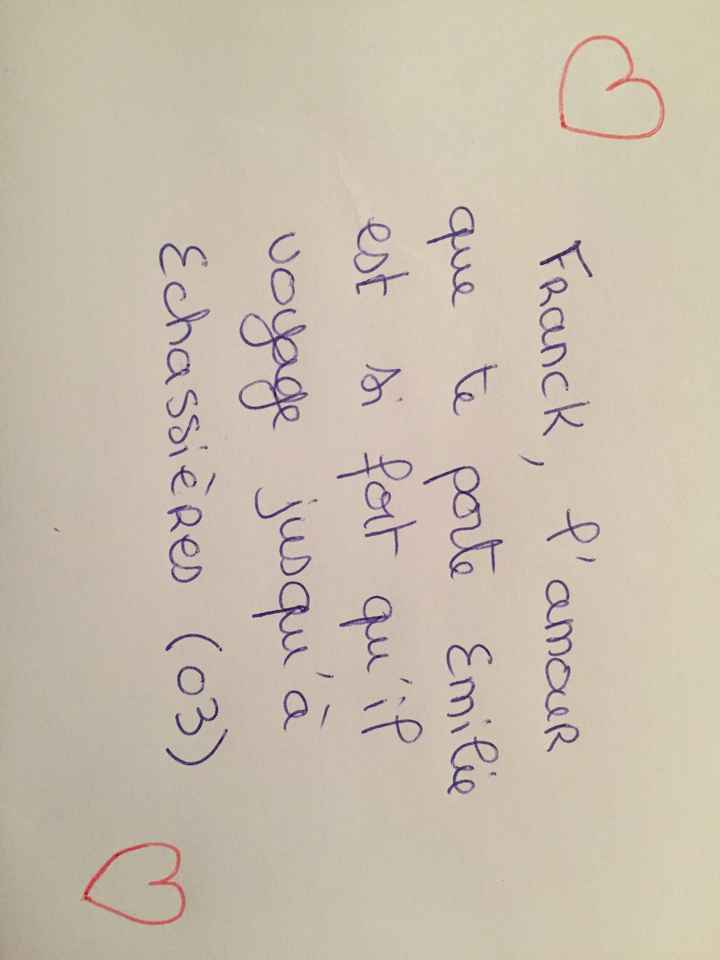 Franck, l'amour
que te porte Emilie
est si fort qu'il
voyage jusqu'à
Echassières (03)